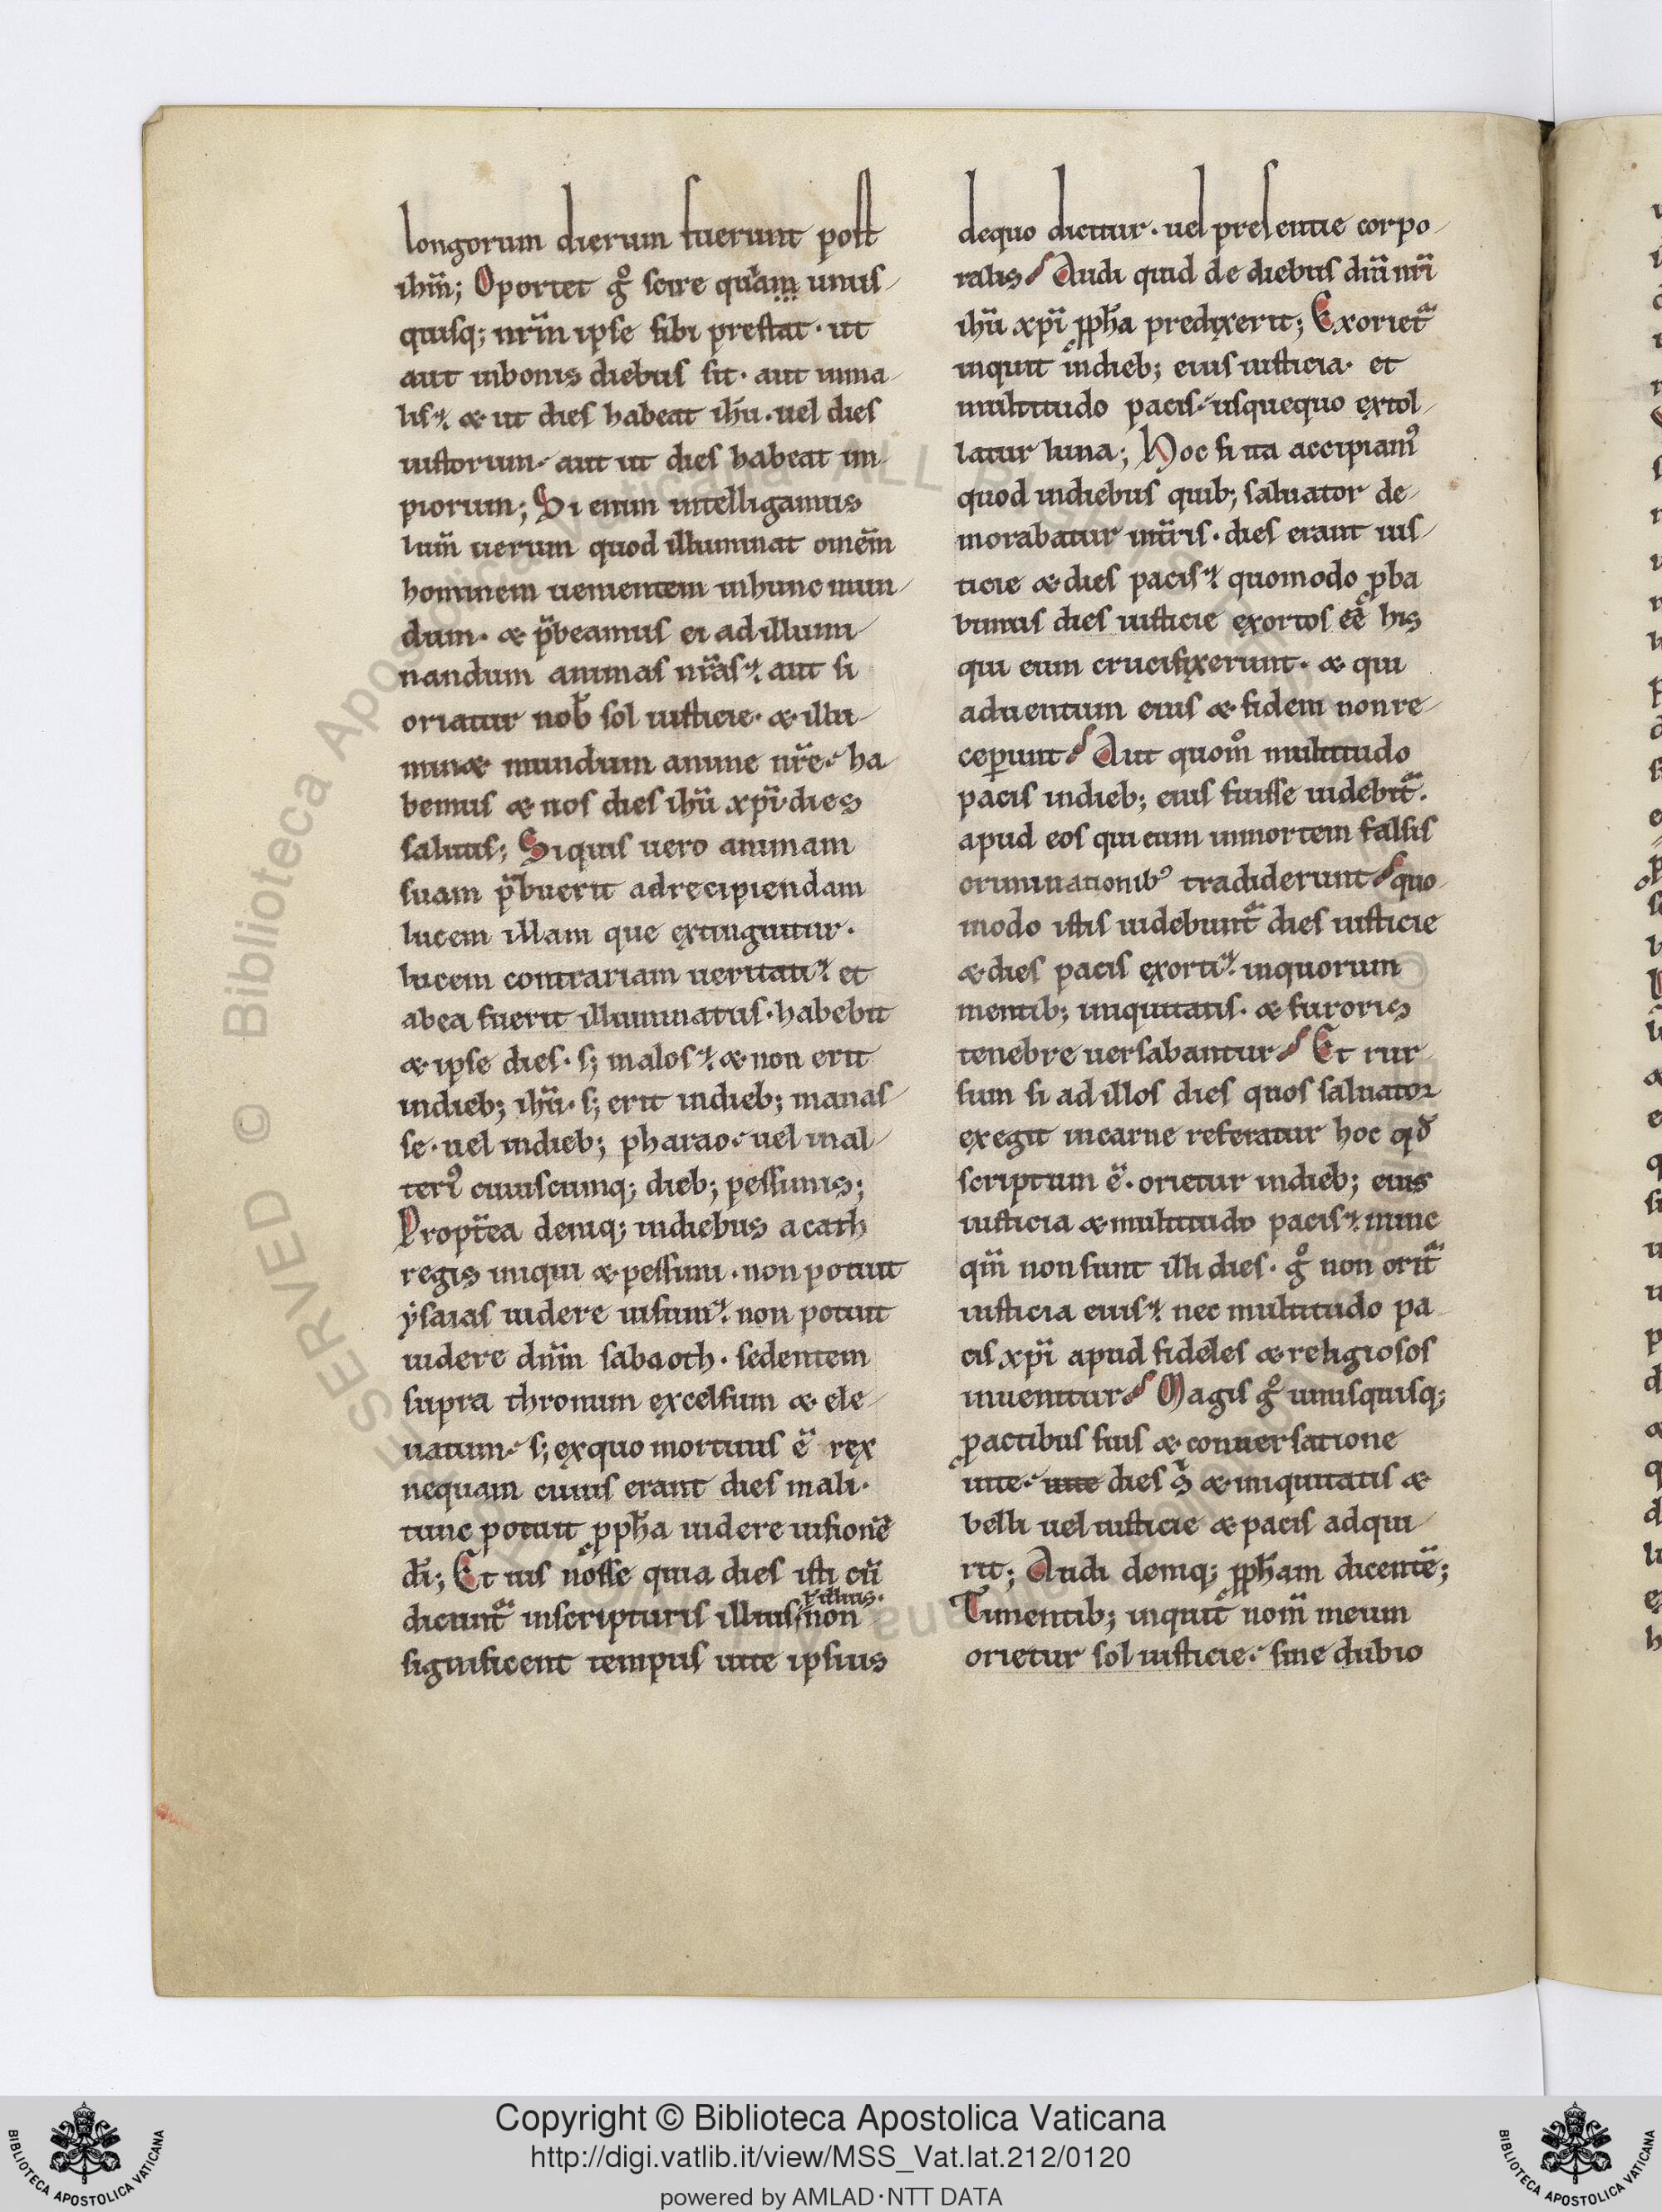 longorum dierum fuerunt post
ihm̄; Oportet gͦ scire quiam unus-
quisq; nr̄m ipse sibi prestat · ut
aut inbonis diebus sit · aut inma-
lis · & ut dies habeat ihū · uel dies
iustorum · aut ut dies habeat im-
piorum; Si enim intelligamus
lum̄ uerum quod illuminat omēm
hominem uenientem inhunc mun-
dum · & p̄beamus ei ad illumi-
nandum animas nr̄as · aut si
oriatur nob̄ sol iusticie · & illu-
min& mundum anime nr̄e · ha-
bemus & nos dies ihū xp̄i · dies
salutis; Siquis uero animam
suam p̄buerit adrecipiendam
lucem illam que extinguitur ·
lucem contrariam ueritati · et
abea fuerit illuminatus · habebit
& ipse dies · s; malos · & non erit
indieb; ihū · s; erit indieb; manas-
se · uel indieb; pharao · uel inal-
teri᾿ cuiuscumq; dieb; pessimis;
Propt̄ea deniq; indiebus acath
regis iniqui & pessimi · non potuit
ysaias uidere uisum · non potuit
uidere dnm̄ sabaoth · sedentem
supra thronum excelsum & ele-
uatum · s; exquo mortuus ē rex
nequam cuius erant dies mali ·
tunc potuit pph̄a uidere uisionē
dī; Et uis nosse quia dies isti cū
dicunt᷑ inscripturis illius non
significent tempus uite ipsius
dequo dicitur · uel presentie corpo-
ralis Audi quid de diebus dn̄i nr̄i
ihū xp̄i pph̄a predixerit; Exoriet᷑
inquit indieb; eius iusticia · et
multitudo pacis · usquequo extol-
latur luna; Hoc si ita accipiam᾿
quod indiebus quib; saluator de-
morabatur intr̄is · dies erant ius-
ticie & dies pacis · quomodo ꝓba-
bimus dies iusticie exortos eē his
qui eum crucifixerunt · & qui
aduentum eius & fidem nonre-
ceperunt Aut quom̊ multitudo
pacis indieb; eius fuisse uidebit᷑ ·
apud eos qui eum inmortem falsis
criminationib᾿ tradiderunt quo-
modo istis uidebunt᷑ dies iusticie
& dies pacis exorti · inquorum
mentib; iniquitatis · & furoris
tenebre uersabantur Et rur-
sum si ad illos dies quos saluator
exegit incarne referatur hoc qd̄
scriptum ē · orietur indieb; eius
iusticia & multitudo pacis · nunc
qm̄ non sunt illi dies · gͦ non orit᷑
iusticia eius · nec multitudo pa-
cis xp̄i apud fideles & religiosos
inuenitur Magis gͦ unusquisq;
ꝓactibus suis & conuersatione
uite · uite dies s̄ & iniquitatis &
belli uel iusticie & pacis adqui-
rit; Audi deniq; pph̄am dicentē;
Timentib; inquit nom̄ meum
orietur sol iusticie · sine dubio
Copyright © Biblioteca Apostolica Vaticana
http://digi.vatlib.it/view/MSS_Vat.lat.212/0120
powered by AMLAD·NTT DATA